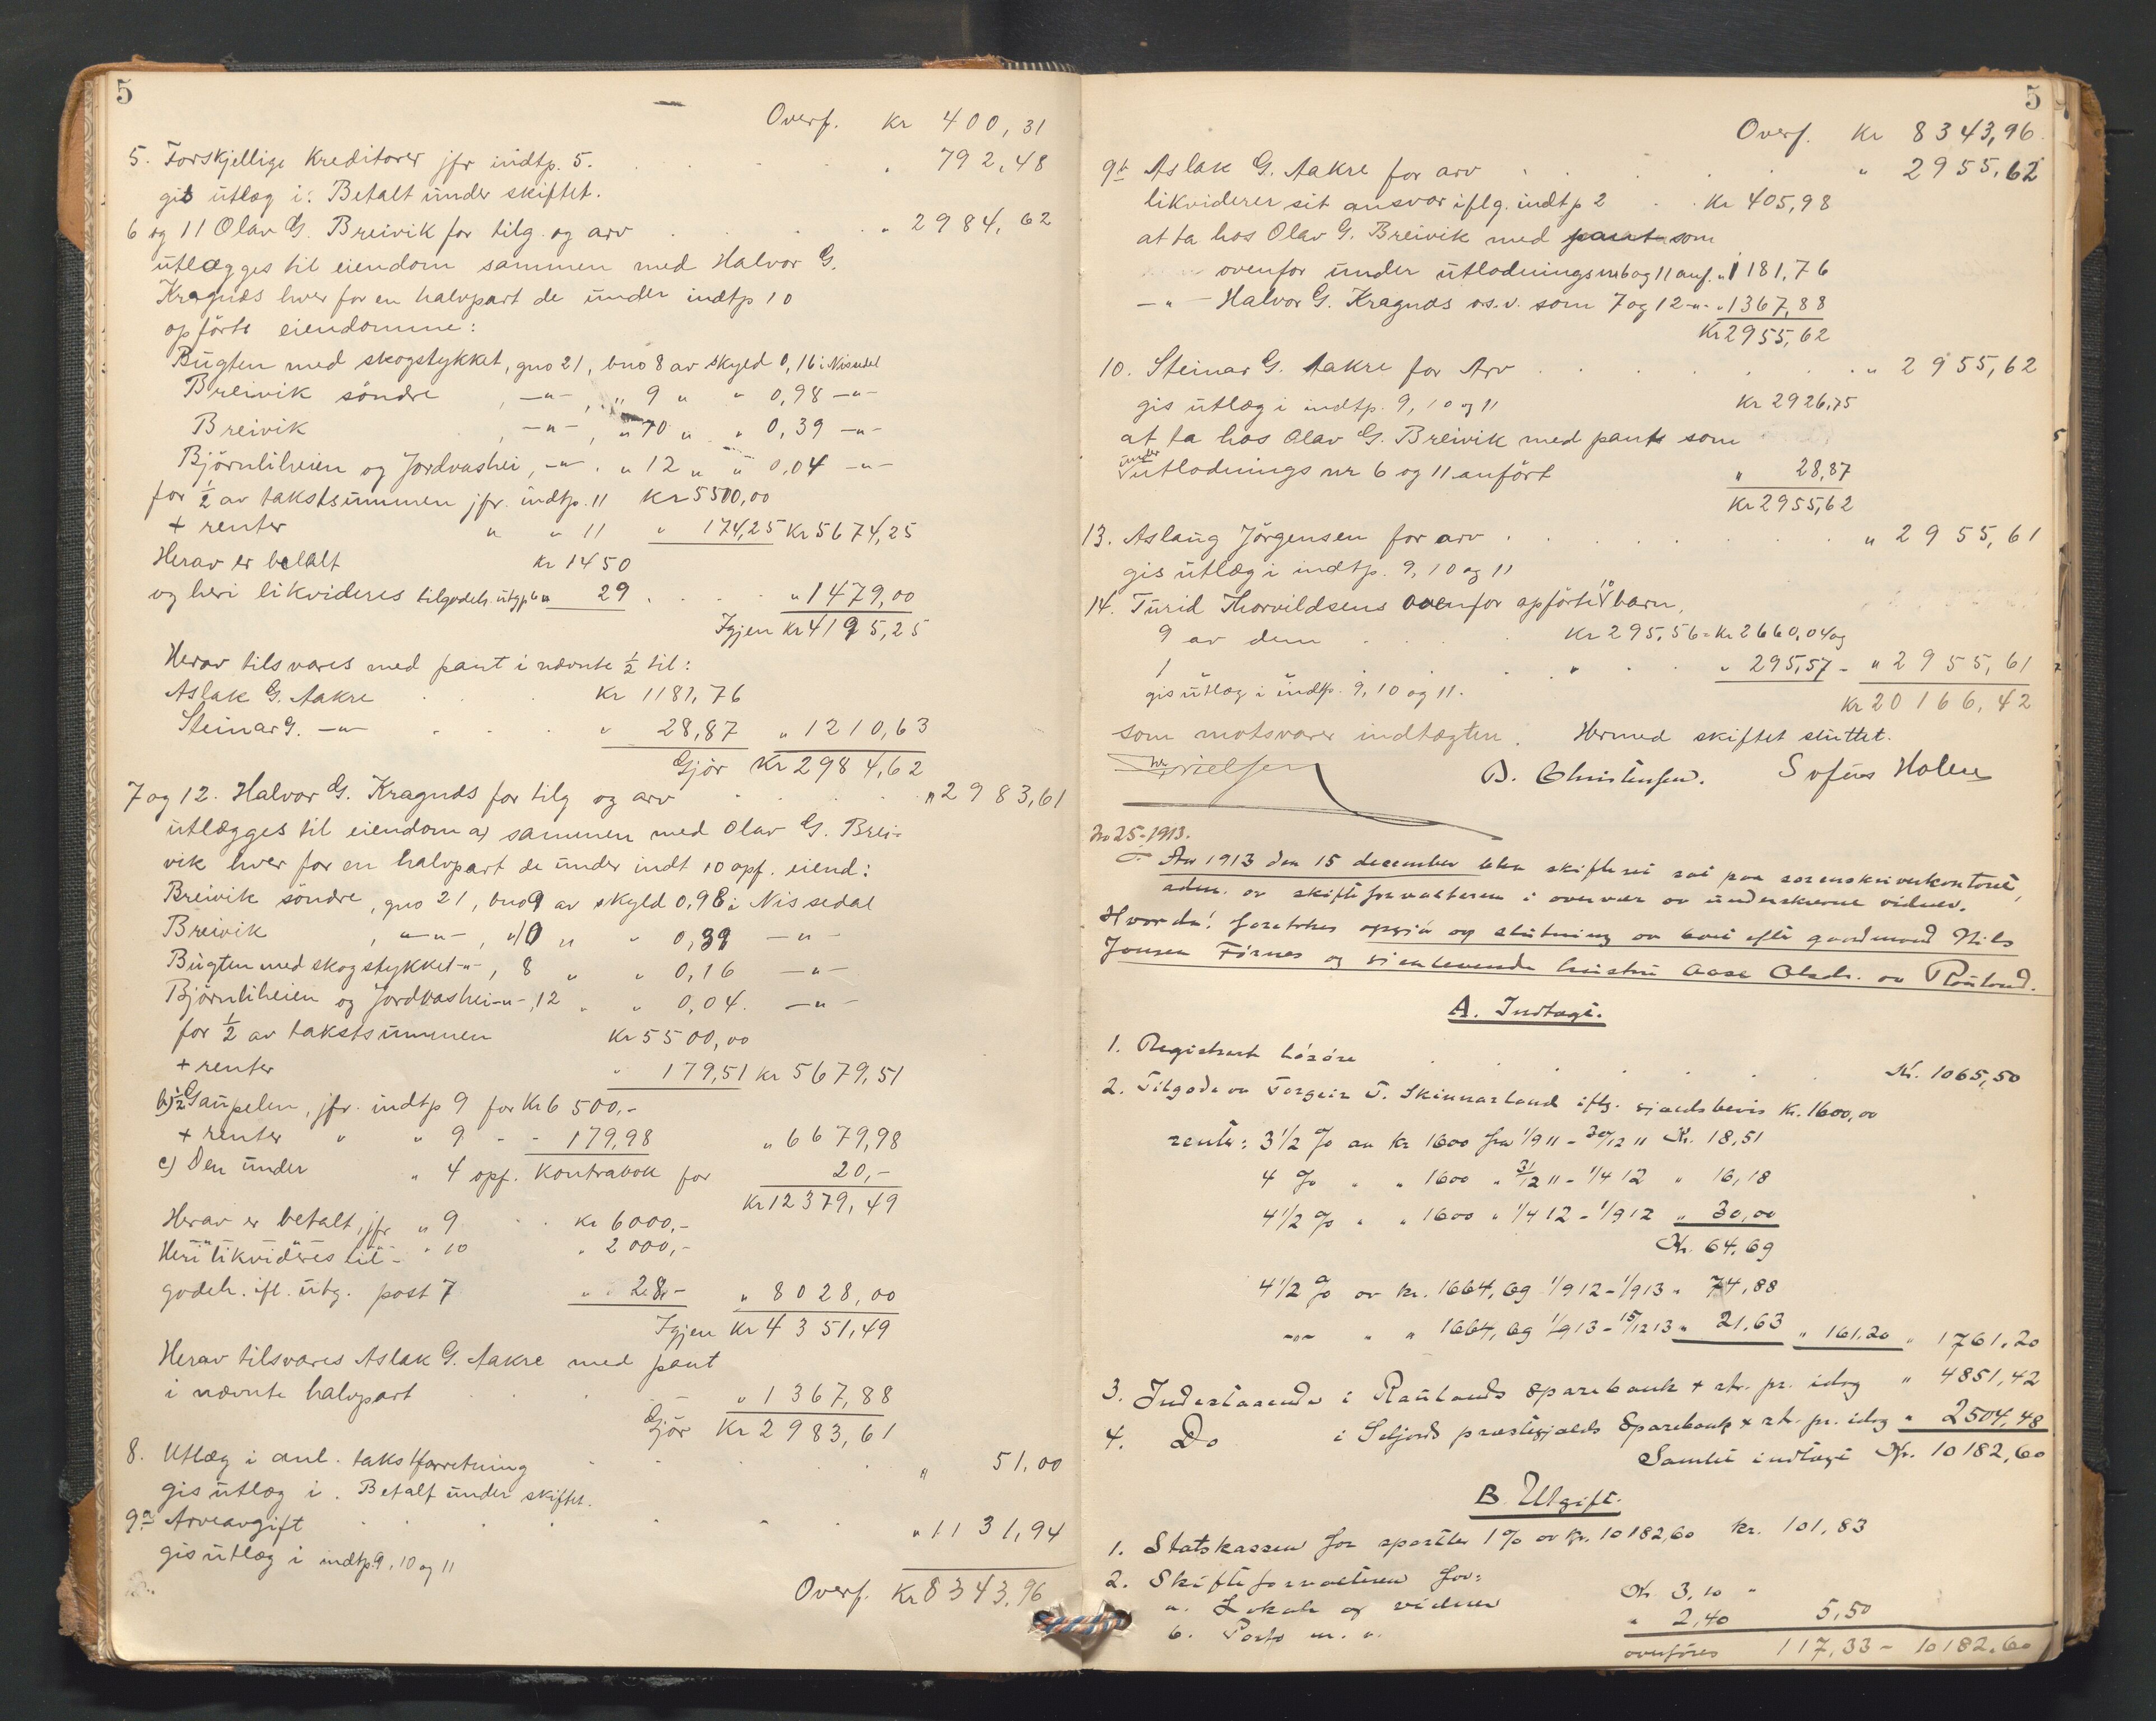 5
Overf. Kr 400,31
5. Forskjellige kreditorer jfr indtp. 5. . . . " 792,48
gis utlæg i: Betalt under skiftet.
6 og 11 Olav G. Breivik for tilg. og arv . . . " 2984,62
utlægges til eiendom sammen med Halvor G.
Kragnæs hver for en halvpart de under indtp 10
opförte eiendomme:
Bugten med skogstykket, gno 21, bno 8 av skyld 0,16 i Nissedal
Breivik söndre , -"- , " 9 " " 0,98 -"-
Breivik , -"- , " 10 " " 0,39 -"-
Björnliheien og Jordvashei, -"- . " 12 " " 0,04 -"-
for ½ av takstsummen jfr. indtp. 11 Kr 5500,00
+ renter " " 11 " 174,25 Kr 5674,25
Herav er betalt Kr 1450
og heri likvideres tilgodeh. utgp 6 " 29 . . . " 1479,00
Igjen Kr 4195,25
Herav tilsvares med pant i nævnte ½ til:
Aslak G. Aakre . . Kr 1181,76
Steinar G. -"- . . . " 28,87 " 1210,63
Gjör Kr 2984,62
7 og 12. Halvor G. Kragnæs for tilg og arv . . . . " 2983,61
utlægges til eiendom a) sammen med Olav G. Brei-
vik hver for en halvpart de under indt 10 opf. eiend:
Breivik söndre, gno 21, bno 9 av skyld 0,98 i Nissedal
Breivik , -"- , " 10 " " 0,39 -"-
Bugten med skogstykket -"-, 8 " " 0,16 -"-
Björnliheien og Jordvashei -"-, 12 " " 0,04. -"-
for ½ av takstsummen Kr 5500,00
+ renter " 179,51 Kr 5679,51
b) ½ Gaupelen, jfr. indtp 9 for Kr 6500,-
+ renter " " 9 - - 179,98 " 6679,98
c) Den under " 4 opf. Kontrabok for 20,-
Kr 12379,49
Herav er betalt, jfr " 9 . . Kr 6000,-
" " " 10 " 2000,-
Heri likvideres til-
godeh. ifl. utg. post 7 " 28,- " 8028,00
Igjen Kr 4351,49
Herav tilsvares Aslak G. Aakre med pant
i nævnte halvpart . . . " 1367,88
Gjör Kr 2983,61
8. Utlæg i anl. takstforretning . . . . " 51,00
gis utlæg i. Betalt under skiftet.
9a Arveavgift . . . . . " 1131,94
gis utlæg i indtp 9, 10 og 11
Overf. Kr 8343,96
5
Overf. Kr 8343,96.
9b Aslak G. Aakre for arv . . . . " 2955,62
likviderer sit ansvar iflg. indtp 2 . . Kr 405,98
at ta hos Olav G. Breivik med pant som
ovenfor under utlodningsnr 6 og 11 anf. " 1181,76
-"- Halvor G. Kragnæs o.s.v. som 7 og 12 -"- " 1367,88
Kr 2955,62
10. Steinar G. Aakre for Arv . . . . " 2955,62
gis utlæg i indtp. 9, 10 og 11 Kr 2926,75
at ta hos Olav G. Breivik med pant som
under utlodnings nr 6 og 11 anfört " 28,87
Kr 2955,62
13. Aslaug Jörgensen for arv . . . . . " 2955,61
gis utlæg i indtp. 9, 10 og 11
14. Turid Thorvildsens ovenfor opförte 10 barn,
9 av dem . . . Kr 295,56 = Kr 2660,04 og
1 . . . " . . " 295,57 - " 2955,61
gis utlæg i indtp. 9, 10 og 11. Kr 20166,42
som motsvarer indtægten. Hermed skiftet sluttet.
Nielsen B. Christensen. Sofus Holen
No 25-1913.
Aar 1913 den 15 december blev skifteret sat paa sorenskriverkontoret,
adm. av skifteforvalteren i overvær av underskrevne vidner.
Hvorda: foretokes opgjör og slutning av boet efter gaardmand Nils
Jonsen Förnes og gjenlevende hustru Aase Olsdr. av Rauland.
A. Indtægt.
1. Registrert lösöre . . . . . Kr. 1065,50
2. Tilgode av Torgeir T. Skinnarland iflg. gjældsbevis Kr. 1600,00
rente: 3½ % av Kr 1600 fra 1/9 11 - 30/12 11 Kr. 18,51
4 % " " 1600 " 31/12 11 - 1/4 12 " 16,18
4½ % " " 1600 " 1/4 12 - 1/9 12 " 30,00
Kr. 64,69
4½ % av Kr. 1664,69 1/9 12 - 1/9 13 " 74,88
-"- " " 1664,69 1/9 13 - 15/12 13 " 21,63 " 161,20 " 1761,20
3. Indestaaende i Raulands Sparebank + rtr. pr. idag " 4851,42
4. Do i Seljord præstegjælds Sparebank + rtr. pr. idag " 2504,48
Samlet indtægt Kr. 10182,60
B. Utgift.
1. Statskassen for sportler 1% av Kr. 10182,60 Kr. 101,83
2. Skifteforvalteren for:
a. Lokale og vidner Kr. 3,10 "
b. Porto m. v. " 2,40 5,50
overføres 117,33 - 10182,60